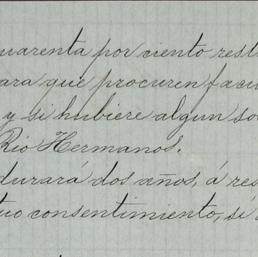 uarenta por ciento rest
ara que procuren facu
y si hubiere algun so
Rio Hermanos.
durará dos años, á res
tuo consentimiento, si